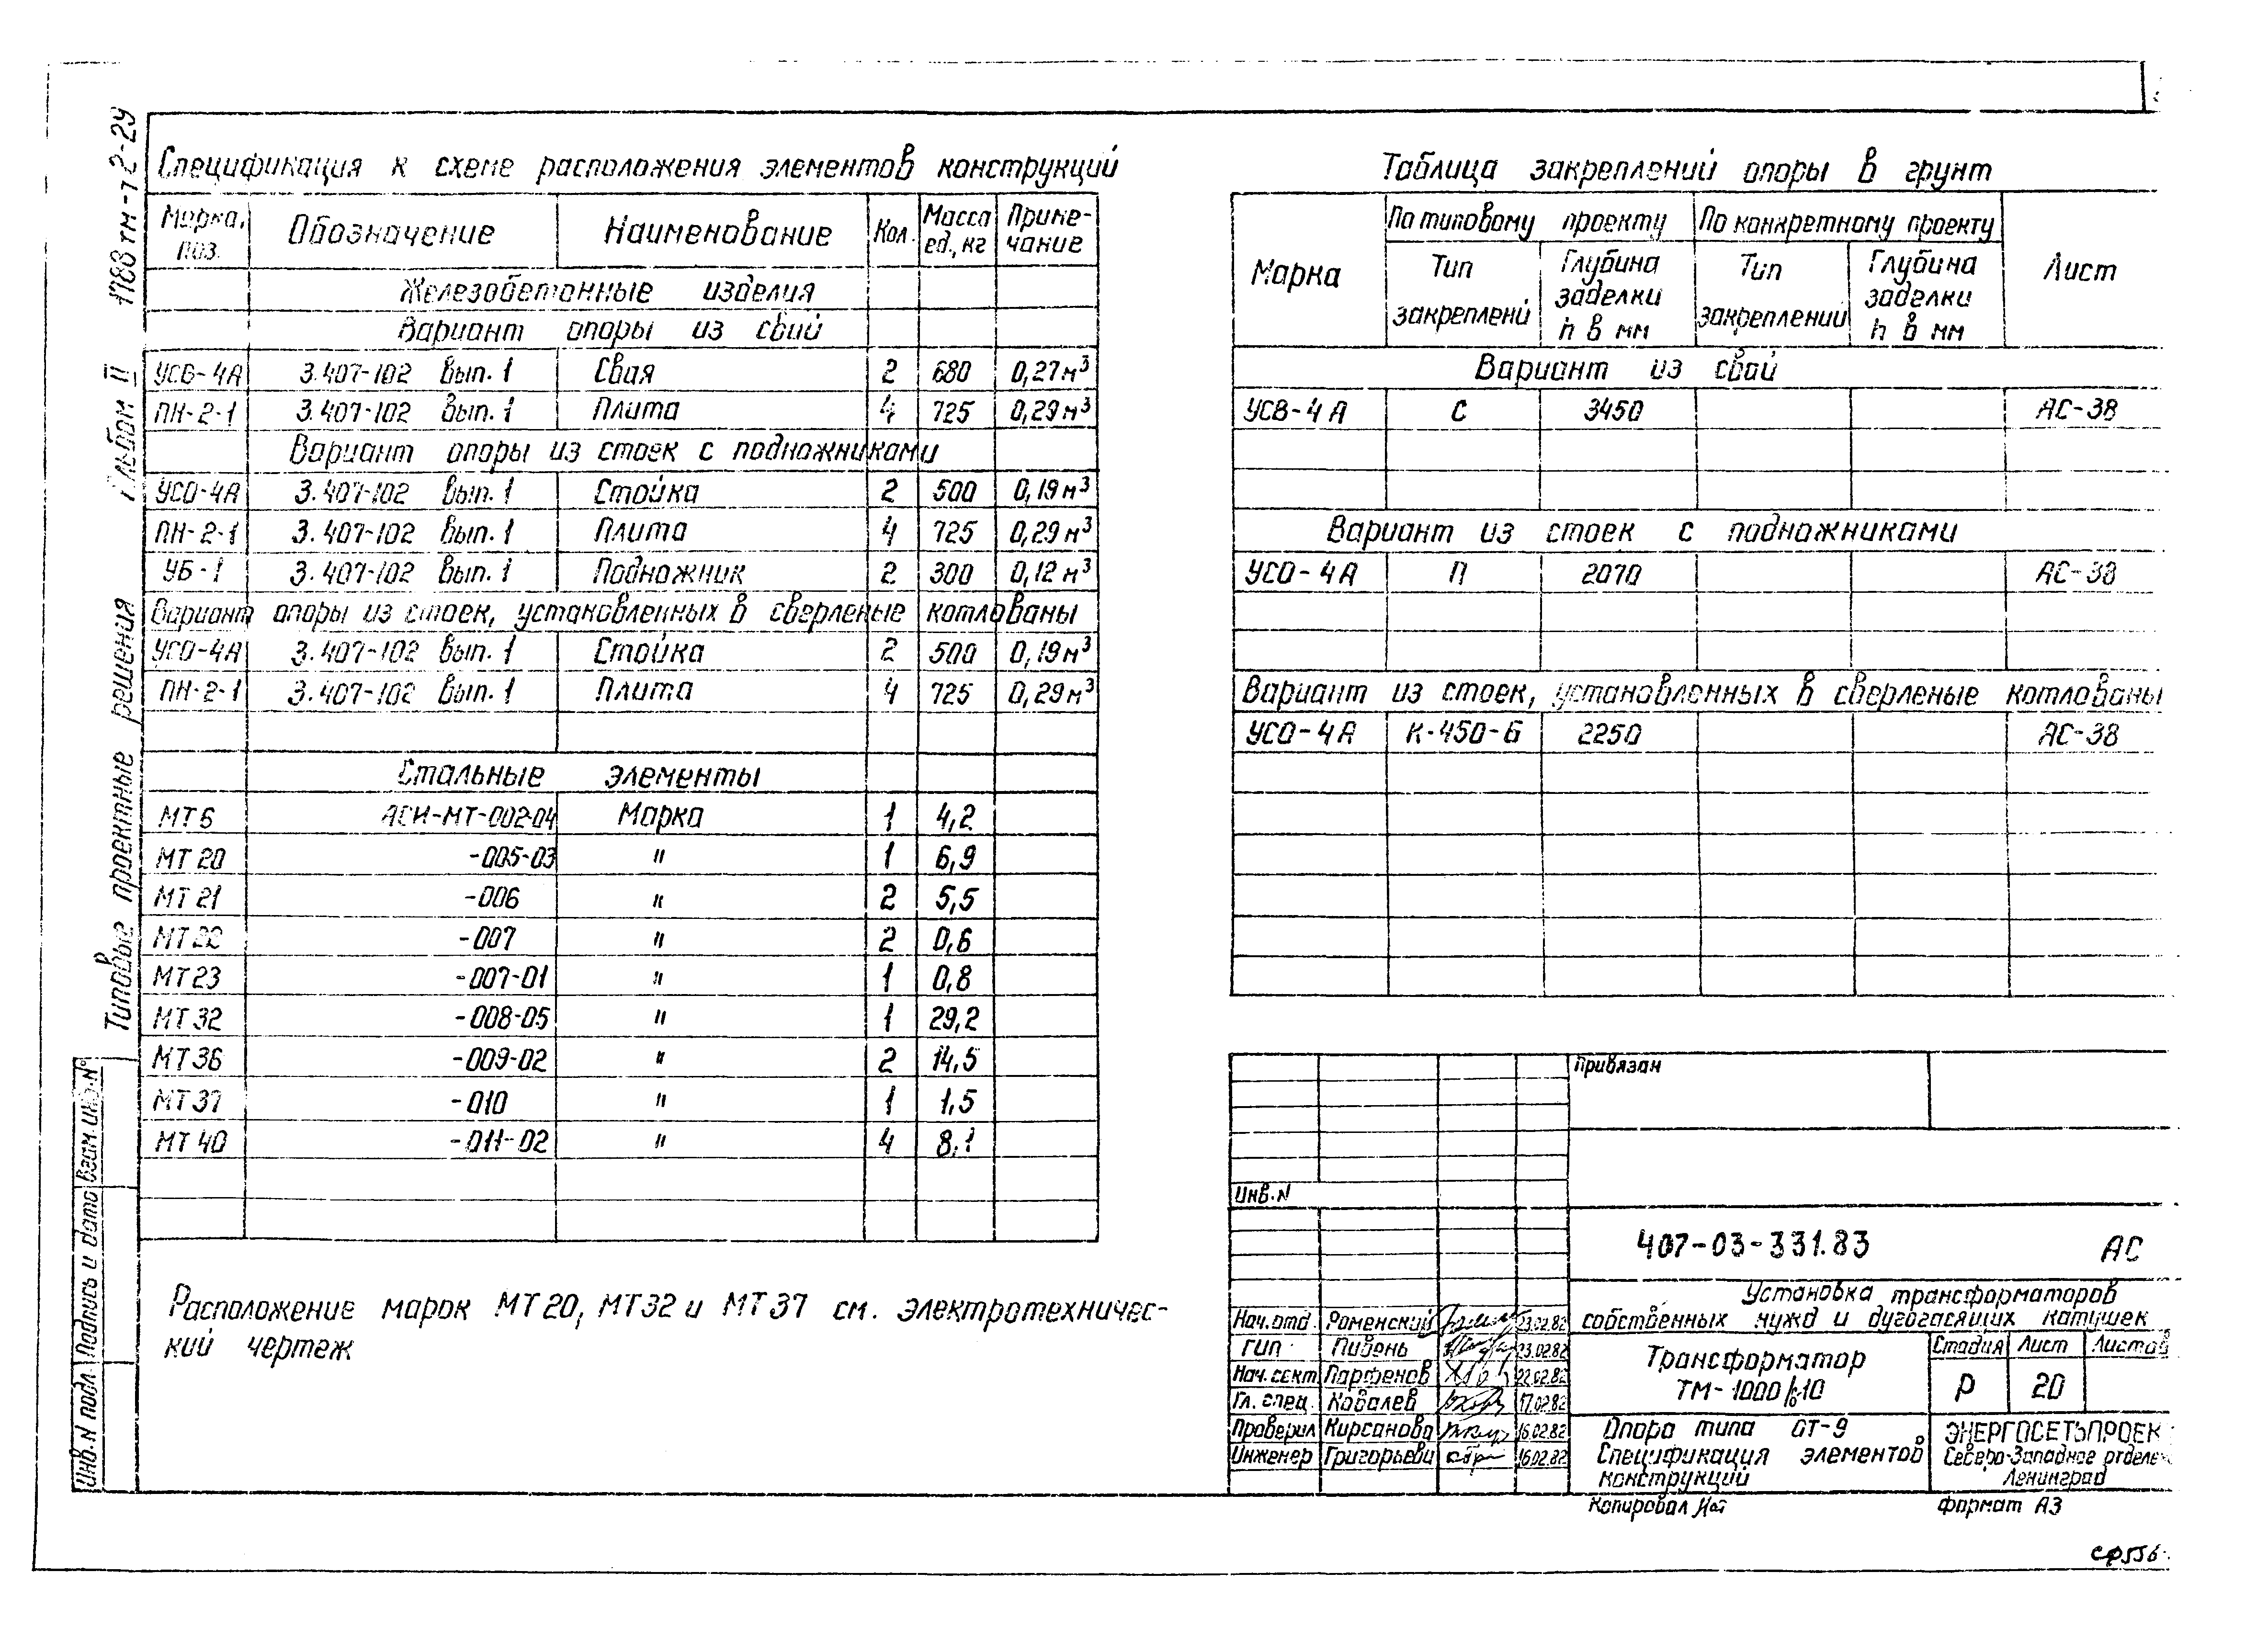 Спецификация к схеме расположения элементов конструкций
Марка, поз. Обозначение Наименование Кол. Масса ед., кг Примечание
Железобетонные изделия
Вариант опоры из свий
УСВ-4А 3.407-102 Вып. 1 Свая 2 680 0,27м³
ПН-2-1 3.407-102 Вып. 1 Плита 4 725 0,29м³
Вариант опоры из стоек с подножниками
УСО-4А 3.407-102 Вып. 1 Стойка 2 500 0,19м³
ПН-2-1 3.407-102 Вып. 1 Плита 4 725 0,29м³
УБ-1 3.407-102 Вып. 1 Подножник 2 300 0,12м³
Вариант опоры из стоек, установленных в сверленые котлованы
УСО-4А 3.407-102 Вып. 1 Стойка 2 500 0,19м³
ПН-2-1 3.407-102 Вып. 1 Плита 4 725 0,29м³
Стальные элементы
МТ6 АСИ-МТ-002-04 Марка 1 4,2
МТ20 -005-03 " 1 6,9
МТ21 -006 " 2 5,5
МТ22 -007 " 2 0,6
МТ23 -007-01 " 1 0,8
МТ32 -008-05 " 1 29,2
МТ36 -009-02 " 2 14,5
МТ37 -010 " 1 1,5
МТ40 -011-02 " 4 8,1
Расположение марок МТ20, МТ32 и МТ37 см. электротехничес-
кий чертеж
Таблица закреплений опоры в грунт
Марка По типовому проекту По конкретному проекту Лист
Тип закреплени Глубина заделки h в мм Тип закреплений Глубина заделки h в мм
Вариант из свай
УСВ-4А С 3450 АС-38
Вариант из стоек с подножниками
УСО-4А П 2070 АС-38
Вариант из стоек, установленных в сверленые котлованы
УСО-4А К-450-Б 2250 АС-38
Привязан
Инв.N
407-03-331.83 АС
Установка трансформаторов
собственных нужд и дугогасящих катушек
Нач.отд. Роменский 23.02.82
ГИП Пидень 23.02.82
Нач.сект. Парфенов 22.02.82
Гл. спец. Ковалев 17.02.82
Проверил Кирсанова 16.02.82
Инженер Григорьева 16.02.82
Трансформатор
ТМ-1000/6-10
Стадия Лист Листов
Р 20
Опора типа ОТ-9
Спецификация элементов
конструкций
ЭНЕРГОСЕТЬПРОЕК
Северо-Западное отделе
Ленинград
Копировал
Формат А3
Типовые проектные решения Альбом II
Инв.N подл. Подпись и дата Взам.инв.N°